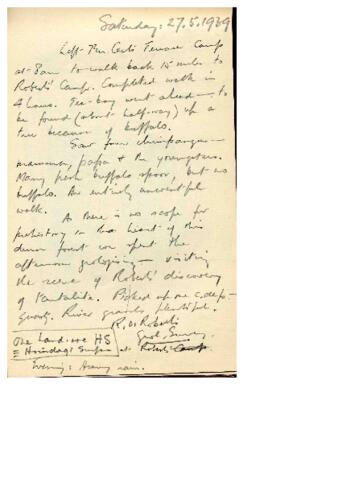 Saturday: 27.5.1939
Left Terrace Camp
at 8am to walk back 15 miles to
Roberts' Camp. Completed walk in
4 hours. Tea-boy went ahead – to
be found (about half-way) up a
tree because of buffalo.
Saw four chimpanzees –
mamma, papa & two youngsters.
Many fresh buffalo spoor, but no
buffalo. An entirely uneventful
walk.
As there is no scope for
prehistory in the heart of this
dense forest we spent the
afternoon geologising – visiting
the scene of Roberts' discovery
of Tantalite. Picked up one
River gravels plentiful.
R. O. Roberts
Geol. Survey
at Roberts' Camp
One HS
Evening: Heavy rain.